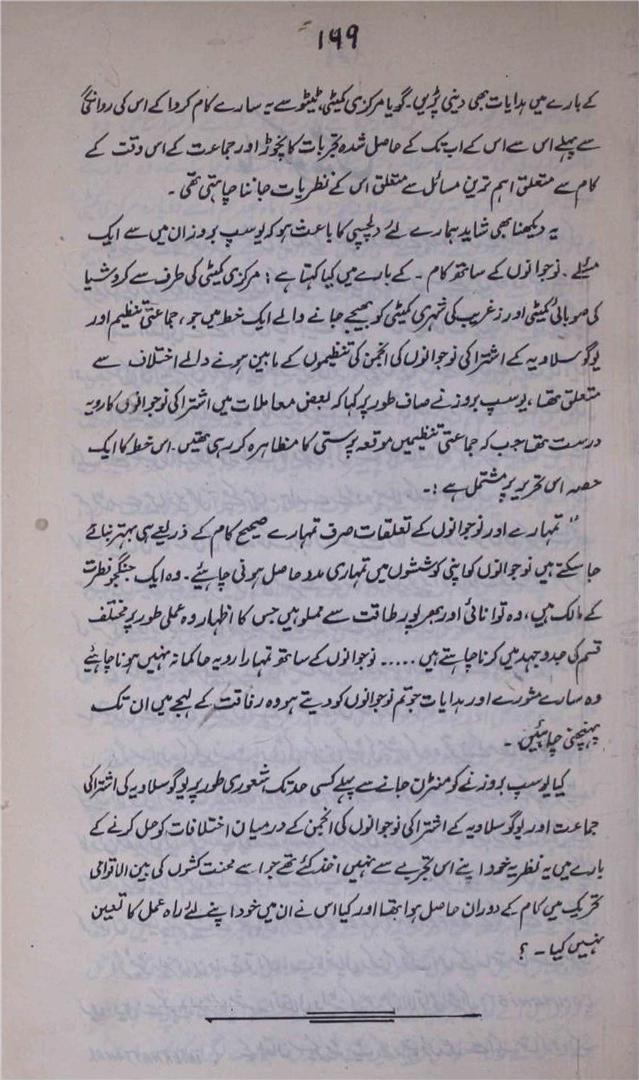 ۱۶۹
کے بارے میں ہدایات بھی دینی پڑیں۔ گویا مرکزی کمیٹی، ٹیٹو سے یہ سارے کام کروا کے اس کی روانگی
سے پہلے اس سے اس کے اب تک کے حاصل شدہ تجربات کا نچوڑ اور جماعت کے اس وقت کے
کام سے متعلق اہم ترین مسائل سے متعلق اس کے نظریات جاننا چاہتی تھی ۔
یہ دیکھنا بھی شاید ہمارے لئے دلچسپی کا باعث ہو کہ یوسپ بروز ان میں سے ایک
مسئلے ۔ نوجوانوں کے ساتھ کام ۔ کے بارے میں کیا کہتا ہے : مرکزی کمیٹی کی طرف سے کروشیا
کی صوبائی کمیٹی اور زغرب کی شہری کمیٹی کو بھیجے جانے والے ایک خط میں جو، جماعتی تنظیم اور
یوگوسلاویہ کے اشتراکی نوجوانوں کی انجمن کی تنظیموں کے مابین ہونے والے اختلاف سے
متعلق تھا، یوسپ بروز نے صاف طور پر کہا کہ بعض معاملات میں اشتراکی نوجوانوں کا رویہ
درست تھا جب کہ جماعتی تنظیمیں موقعہ پرستی کا مظاہرہ کر رہی تھیں۔ اس خط کا ایک
حصہ اس تحریر پر مشتمل ہے :۔
" تمہارے اور نوجوانوں کے تعلقات صرف تمہارے صحیح کام کے ذریعے ہی بہتر بنائے
جا سکتے ہیں نوجوانوں کو اپنی کوششوں میں تمہاری مدد حاصل ہونی چاہیئے۔ وہ ایک جنگجو فطرت
کے مالک ہیں، وہ توانائی اور بھرپور طاقت سے مملو ہیں جس کا اظہار وہ عملی طور پر مختلف
قسم کی جدوجہد میں کرنا چاہتے ہیں ..... نوجوانوں کے ساتھ تمہارا رویہ حاکمانہ نہیں ہونا چاہیئے
وہ سارے مشورے اور ہدایات جو تم نوجوانوں کو دیتے ہو وہ رفاقت کے لہجے میں ان تک
پہنچنی چاہئیں ۔
کیا یوسپ بروز نے کومنٹرن جانے سے پہلے کسی حد تک شعوری طور پر یوگوسلاویہ کی اشتراکی
جماعت اور یوگوسلاویہ کے اشتراکی نوجوانوں کی انجمن کے درمیان اختلافات کو حل کرنے کے
بارے میں یہ نظریہ خود اپنے اس تجربے سے نہیں اخذ کئے تھے جو اسے محنت کشوں کی بین الاقوامی
تحریک میں کام کے دوران حاصل ہوا تھا اور کیا اس نے ان میں خود اپنے لئے راہ عمل کا تعین
نہیں کیا ۔ ؟